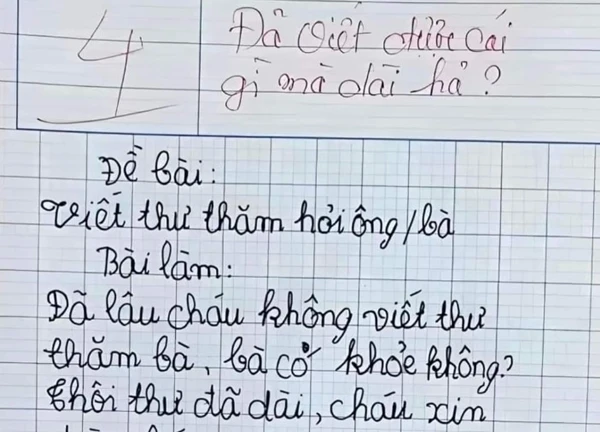 4
Đã viết được cái
gì mà dài hả?
Đề bài:
Viết thư thăm hỏi ông/bà
Bài làm:
Đã lâu cháu không viết thư
thăm bà, bà có khỏe không?
Thôi thư đã dài, cháu xin